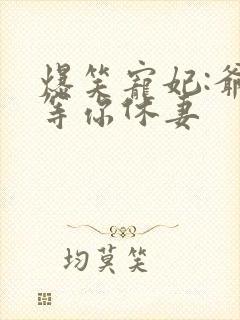 爆笑寵妃:爺
等你休妻
均莫笑